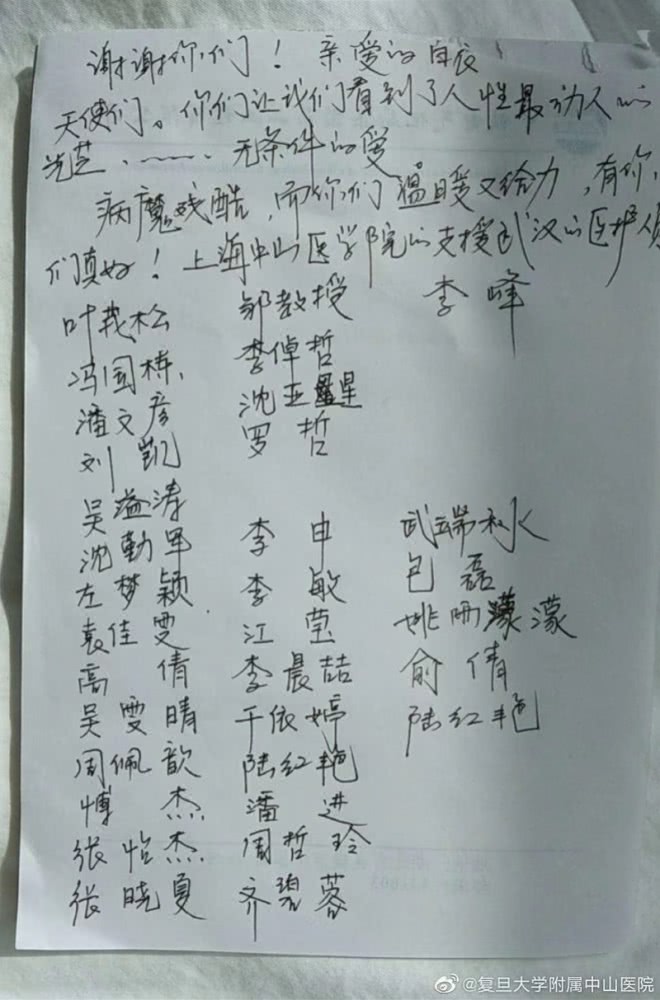 谢谢你们！亲爱的白衣
天使们。你们让我们看到了人性最动人的
光芒、……无条件的爱
病魔残酷，而你们温暖又给力，有你
们真好！上海中山医学院的支援武汉的医护人员
叶茂松 邹教授 李峰
冯国栋、 李倬哲
潘文彦 沈亚星
刘凯 罗哲
吴溢涛
沈勤军 李申 武端秋水
左梦颖 李敏 包磊
袁佳雯 江莹 姚雨濛濛
高倩 李晨喆 俞倩
吴雯晴 于依婷 陆红艳
周佩歆 陆红艳
博杰 潘进
张怡杰 周哲玲
张晓夏 齐碧蓉
@复旦大学附属中山医院